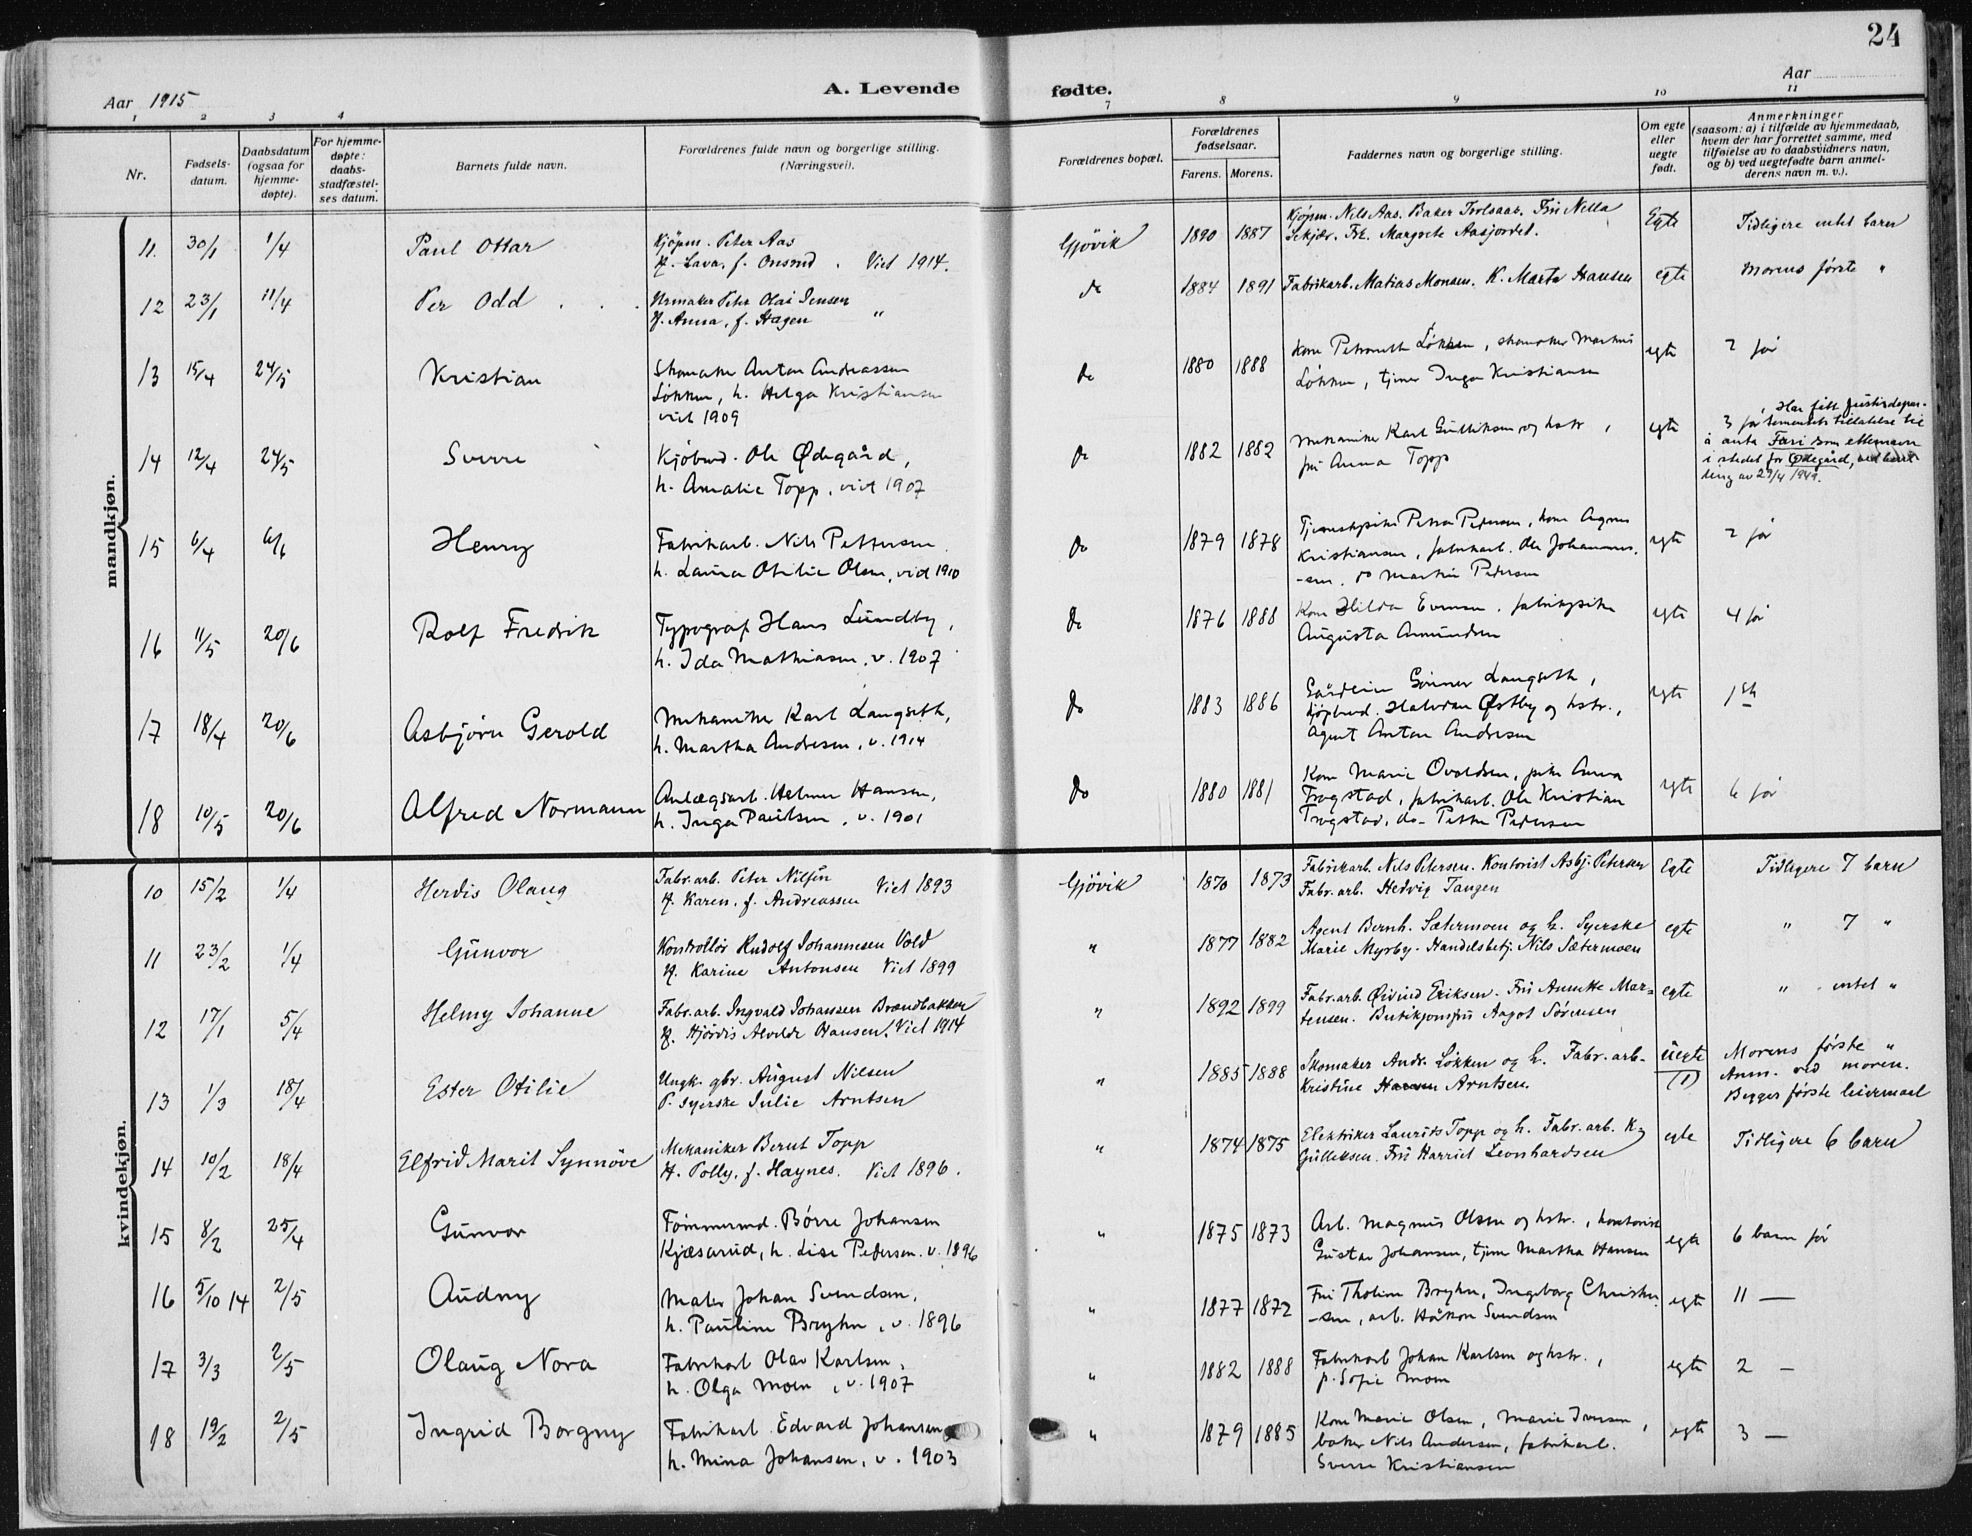 24
Aar 1915
A. Levende fødte.
Aar
1 2 3 4 7 8 9 10 11
Nr.
Fødsels-
datum.
Daabsdatum
(ogsaa for
hjemme-
døpte).
For hjemme-
døpte:
daabs-
stadfæstel-
ses datum.
Barnets fulde navn.
Forældrenes fulde navn og borgerlige stilling.
(Næringsvei).
Forældrenes bopæl.
Forældrenes
fødselsaar.
Farens. Morens.
Faddernes navn og borgerlige stilling.
Om egte
eller
uegte
født.
Anmerkninger
(saasom: a) i tilfælde av hjemmedaab,
hvem der har forrettet samme, med
tilføielse av to daabsvidners navn,
og b) ved uegtefødte barn anmel-
derens navn m. v.).
mandkjøn.
11. 30/1 1/4 Paul Ottar
Kjøpm. Peter Aas
H. Lava, f. Onsrud. Viet 1914.
Gjövik 1890 1887
Kjøpm. Nils Aas. Baker Torlsaas. Fru Nella
Sekjær. Frk. Margrete Aasjordet.
Egte Tidligere intet barn
12 23/1 11/4 Per Odd
Urmaker Peter Olai Jensen
H. Anna, f. Hagen "
do 1884 1891 Fabrikarb. Matias Monsen. K. Marta Hansen egte Morens første "
13 15/4 24/5 Kristian
Skomaker Anton Andreassen
Løkken, h. Helga Kristiansen
viet 1909
do 1880 1888
Kone Petronelle Løkken, skomaker Markus
Løkken, tjener Inga Kristiansen
egte 2 før
14 12/4 24/5 Sverre
Kjøbmd. Ole Ødegård,
h. Amalie Topp, viet 1907
do 1882 1882
Mekaniker Karl Gulliksen og hstr,
fru Anna Topp
egte 3 før
Har fått justisdepar-
tementets tillatelse til
å anta Fari som etternavn
i stedet for Ødegård, ved
av 29/4 1949.
15 6/4 6/6 Henry
Fabrikarb. Nils Pettersen
h. Laura Otilie Olsen, vied 1910
do 1879 1878
Tjenestepike Petra Pedersen, kone Agnes
Kristiansen, fabrikarb. Ole Johannes-
-sen, do Martin Pedersen
egte 2 før
16 11/5 20/6 Rolf Fredrik
Typograf Hans Lundby,
h. Ida Mathiasen, v. 1907
do 1876 1888
Kone Hilda Evensen, fabrikpike
Augusta Amundsen
egte 4 før
17 18/4 20/6 Asbjørn Gerold
Mekaniker Karl Langseth,
h. Martha Andresen, v. 1914
do 1883 1886
Gunner Langseth,
kjøpmd. Halvdan Østby og hstr.,
Agent Anton Andresen
egte 1ste
18 10/5 20/6 Alfred Normann
Anlægsarb. Helmer Hansen,
h. Inga Paulsen, v. 1901
do 1880 1881
Kone Marie Ovaldsen, pike Anna
Frogstad, fabrikarb. Ole Kristian
Frogstad, do- Petter Pedersen
egte 6 før
kvindekjøn.
10 15/2 1/4 Herdis Olaug
Fabr.arb. Peter Nilsen
H. Karen, f. Andreassen Viet 1893
Gjövik 1870 1873
Fabrikarb. Nils Petersen. Kontorist Asbj. Petersen
Fabr.arb. Hedvig Tangen
Egte Tidligere 7 barn
11 23/2 1/4 Gunvor
Kontrollör Rudolf Johannesen Vold
H. Karine Antonsen Viet 1899
" 1877 1882
Agent Bernh. Sætermoen og h. Syerske
Marie Myrby. Handelsbetj. Nils Sætermoen
egte " 7 "
12 17/1 5/4 Helmy Johanne
Fabr.arb. Ingvald Johansen Brændbakken
H. Hjördis Alvilde Hansen. Viet 1914
" 1892 1899
Fabr.arb. Øivind Eriksen. Fru Annette Mar-
tensen. Butikjomfru Aagot Sörensen
egte " intet "
13 1/3 18/4 Ester Otilie
Ungk. gbr. August Nilsen
P. syerske Julie Arntsen
" 1885 1888
Skomaker Andr. Løkken og h. Fabr.arb.
Kristine Arntsen.
Uegte
(1)
Morens første "
Anm. ved moren.
Begges første leiermaal
14 10/2 18/4 Elfrid Marit Synnöve
Mekaniker Bernt Topp
H. Polly, f. Haynes. Viet 1896.
" 1874 1875
Elektriker Laurits Topp og h. Fabr.arb. K.
Gulliksen. Fru Harriet Leonhardsen
egte Tidligere 6 barn
15 8/2 25/4 Gunvor
Tømmermd. Børre Johansen
Kjæserud, h. Lise Pedersen. v. 1896
" 1875 1873
Arb. Magnus Olsen og hstr., kontorist
Gustav Johansen, tjen. Martha Hansen
egte 6 barn før
16 5/10 14 2/5 Audny
Maler Johan Svendsen,
h. Pauline Bryhn, v. 1896
" 1877 1872
Fru Tholine Bryhn, Ingeborg Christen-
-sen, arb. Håkon Svendsen
egte 11 —
17 3/3 2/5 Olaug Nora
Fabrikarb Olav Karlsen,
h. Olga Moen, v. 1907
" 1882 1888
Fabrikarb Johan Karlsen og hstr.,
p. Sofie Moen
egte 2 —
18 19/2 2/5 Ingrid Borgny
Fabrikarb. Edvard Johansen
h. Mina Johansen, v. 1903
" 1879 1885
Kone Marie Olsen, Marie Iversen,
baker Nils Andersen, fabrikarb.
Sverre Kristiansen
egte 3 —